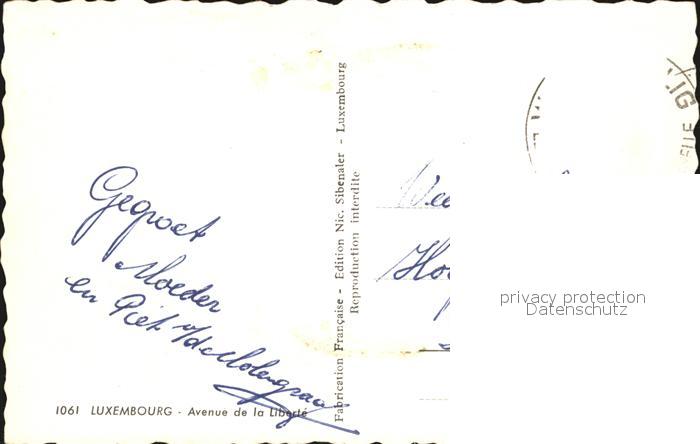 Gegroet
Moeder
en Piet v/d Molengraaf
1061 LUXEMBOURG - Avenue de la Liberté
Fabrication Française - Edition Nic. Sibenaler - Luxembourg
Reproduction interdite
privacy protection
Datenschutz